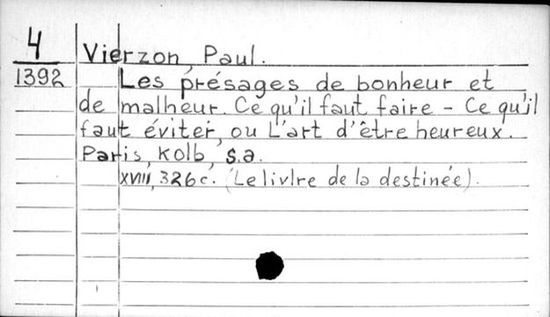 4 Vierzon, Paul.
1392 Les présages de bonheur et
de malheur. Ce qu'il faut faire - Ce qu'il
faut éviter, ou L'art d'être heureux.
Paris, Kolb, s.a.
XVIII, 326 c. (Le livlre de la destinée).